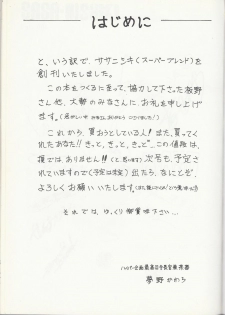 はじめに
と、いう訳で、ササニシキ(スーパーブレンド)を
創刊いたしました。
この本をつくるに至って、協力して下さった板野
さん他、大勢のみなさんに、お礼を申し上げ
ます。
これから、買おうとしている人!また、買ってく
れたあなた!!きっと、きっと、きっと"この値段は、
損ではありません!!(と思います)次号も、予定さ
れていますので(予定は未定)出たら、なにとぞ
よろしくお願いいたします。
それでは、ゆっくり御賞味下さい…
夢野かおる